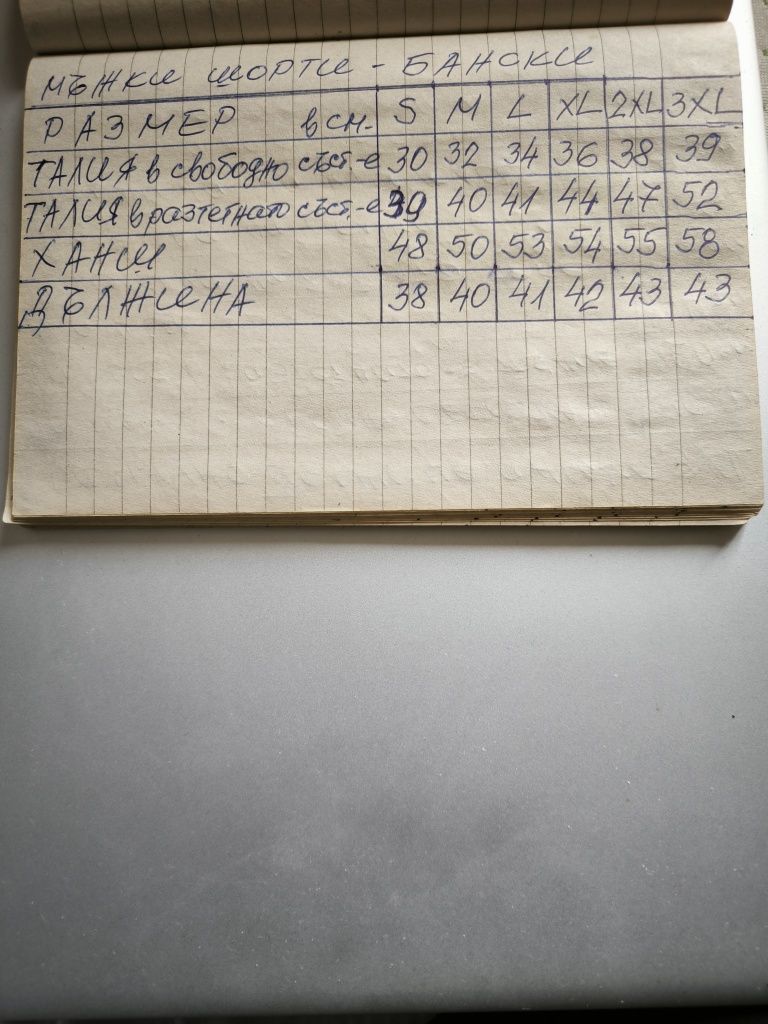 МЪЖКИ ШОРТИ - БАНСКИ
РАЗМЕР в см. S M L XL 2XL 3XL
ТАЛИЯ в свободно съст.-е 30 32 34 36 38 39
ТАЛИЯ в разтегнато съст.-е 39 40 41 44 47 52
ХАНШ 48 50 53 54 55 58
ДЪЛЖИНА 38 40 41 42 43 43